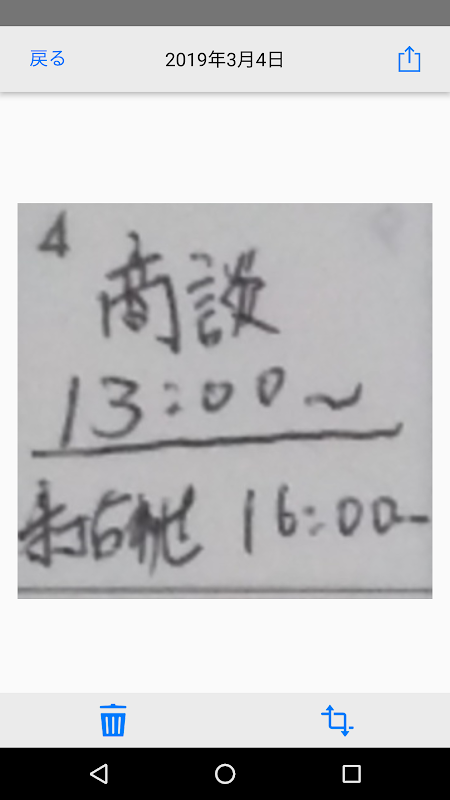 戻る 2019年3月4日
4
商談
13:00~
16:00~